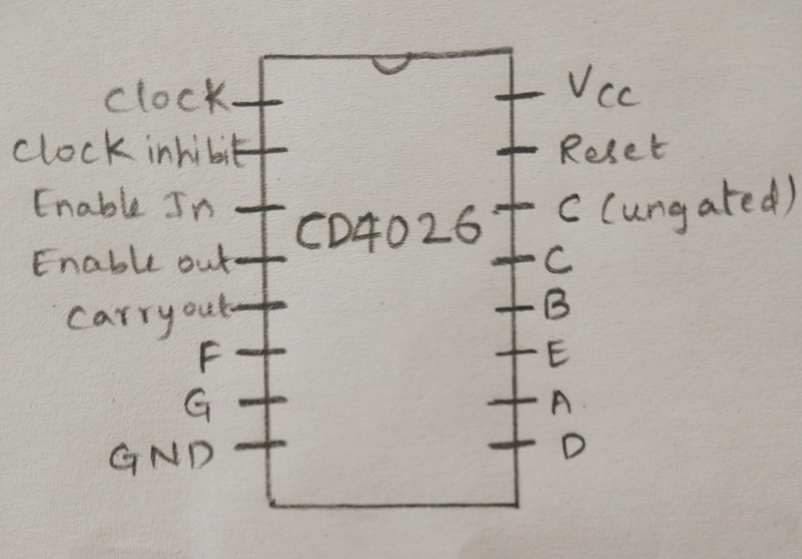 Clock
Clock inhibit
Enable In
Enable out
Carry out
F
G
GND
CD4026
Vcc
Reset
C (ungated)
C
B
E
A
D